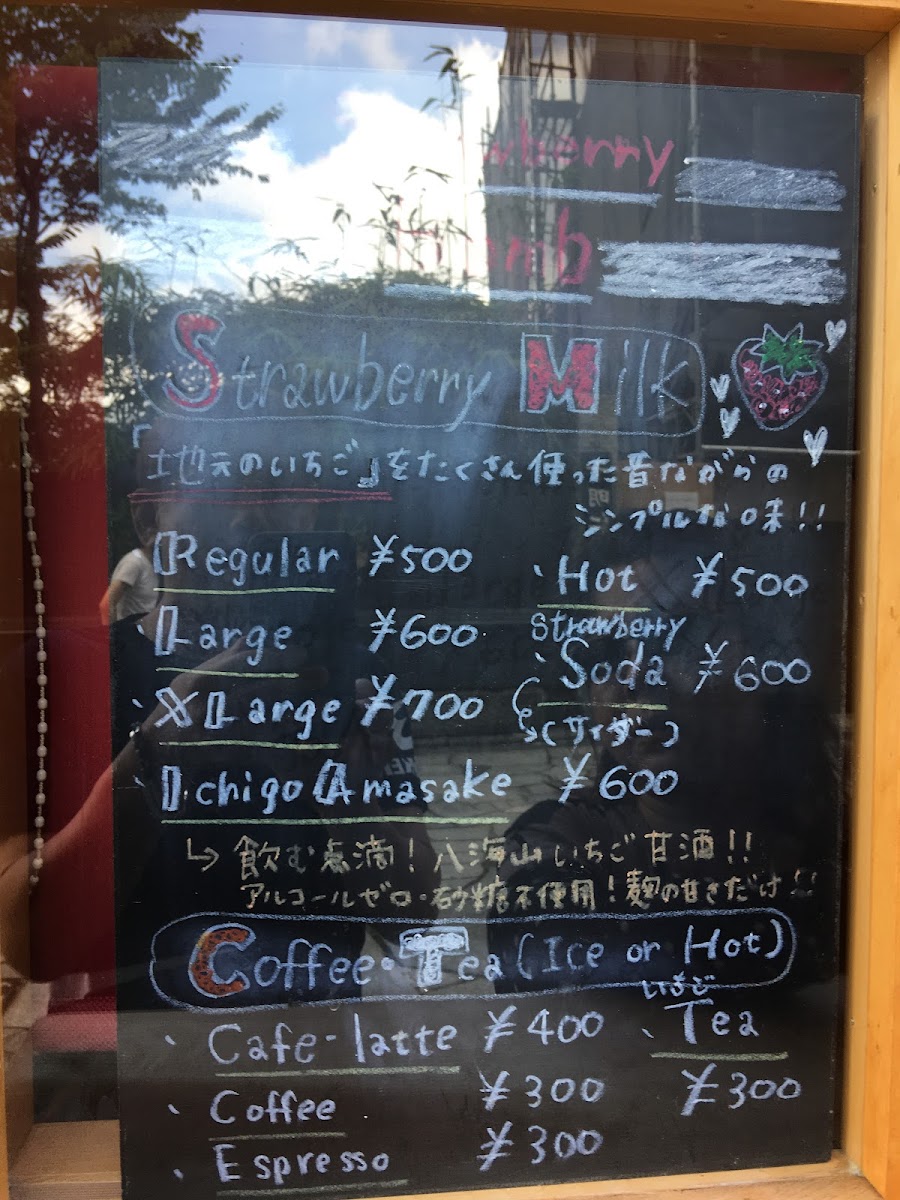 Strawberry Milk
「地元のいちご」をたくさん使った昔ながらの
シンプルな味!!
Regular ¥500
・Large ¥600
・XLarge ¥700
・Hot ¥500
Strawberry
・Soda ¥600
(サイダー)
・Ichigo Amasake ¥600
↳飲む点滴!八海山いちご甘酒!!
アルコールゼロ・砂糖不使用!麹の甘さだけ!!
Coffee・Tea (Ice or Hot)
・Cafe-latte ¥400
・Coffee ¥300
・Espresso ¥300
いちご
・Tea
¥300